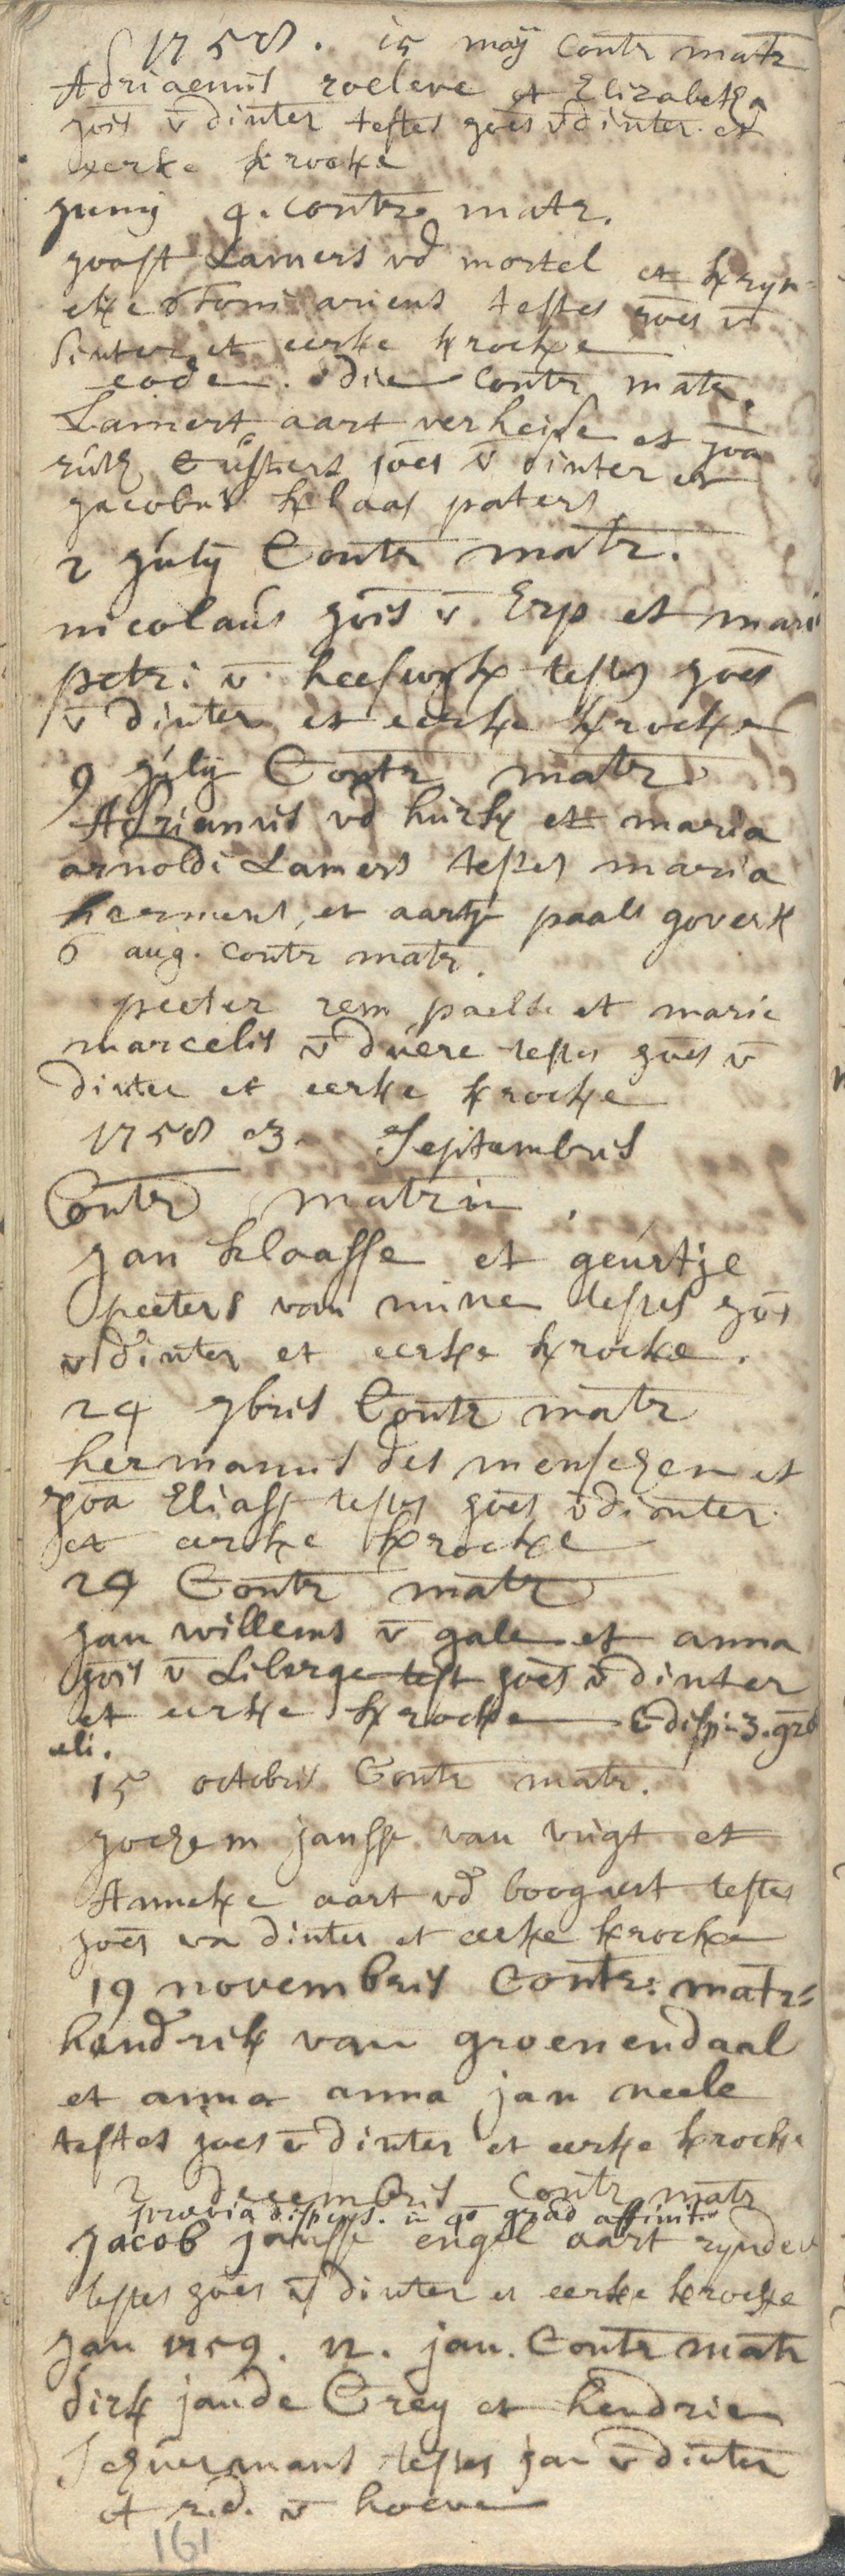 1758. 15 maÿ Contr matr
Adrianus roelevе et Elizabetha
jois v̄ dinter testes joēs v̄ dinter et
eerke krocke
junij 4. contr matr.
joost Lamers vd mortel et kryn-
eke Toni ariens testes joēs v̄
dinter et eerke krocke
eode. die contr matr.
Lamert aart verheise et joā
rutz Custers joēs v̄ dinter et
jacobus klaas paters
2 july Contr matr.
nicolaus jois v̄ Erp et mari
petri v̄ heeswyk testes joēs
v̄ dinter et eerke krocke
9 july Contr matr
Adrianus vd hurk et maria
arnoldi Lamers testes maria
harmens et aartje paals goverts
6 aug. contr matr.
peeter rem paelde et marie
marcelis v̄ duere testes joēs v̄
dinter et eerke krocke
1758 3. Septembris
Contr matrin.
jan klaasse et geurtje
peeters van mine testes jois
v̄ dinter et eerke krocke.
24 7bris Contr matr
hermanus des menschen et
joā Eliass testes joēs v̄ dinter
et eerke krocke
24 Contr matr
jan willems v̄ gale et anna
jois v̄ Liberge test joēs v̄ dinter
et eerke krocke C disp. 3. grd
eli.
15 octobris Contr matr.
jochem jansse van vugt et
Anneke aart vd boogaert testes
joēs va dinter et eerke krocke
19 novembris Contr: matr:
hendrik van groenendaal
et anna anna jan neele
testes joes v̄ dinter et eerke krocke
2 decembris Contr matr
praevia dispens. in 4o grad affinit.
jacob jansse engel aart rynders
testes joēs v̄ dinter et eerke krocke
jan 1759. 12. jan. Contr matr
dirk jan de Crey et hendrien
Schuermans testes jan v̄ dinter
et r.d. v̄ hoeve
161